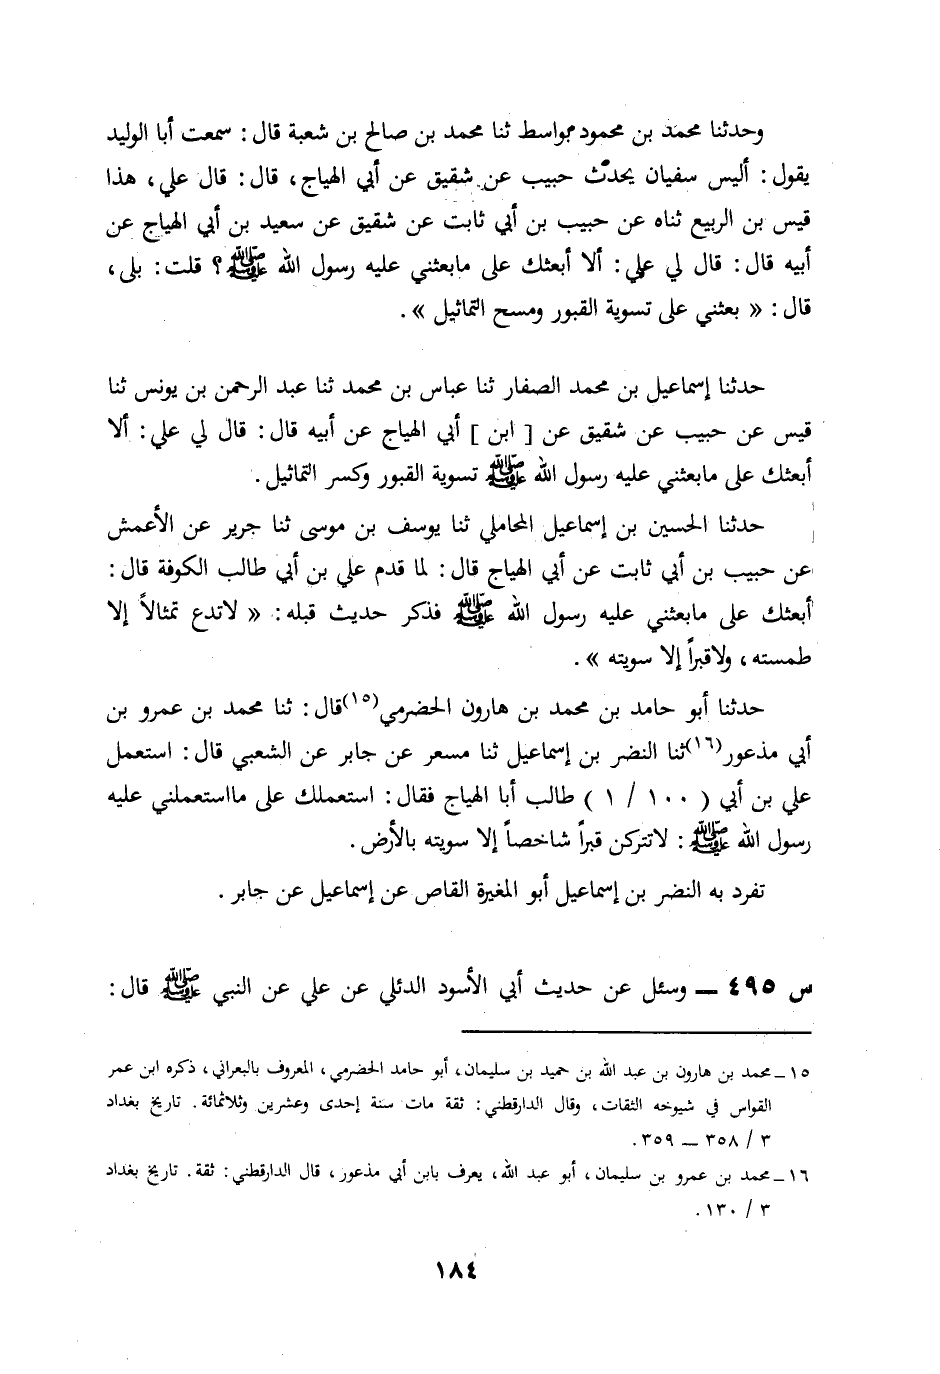 وحدثنا محمد بن محمود بمواسط ثنا محمد بن صالح بن شعبة قال : سمعت أبا الوليد
يقول : أليس سفيان يحدّث حبيب عن شقيق عن أبي الهياج ، قال : قال علي ، هذا
قيس بن الربيع ثناه عن حبيب بن أبي ثابت عن شقيق عن سعيد بن أبي الهياج عن
أبيه قال : قال لي علي : ألا أبعثك على مابعثني عليه رسول الله ﷺ ؟ قلت : بلى ،
قال : « بعثني على تسوية القبور ومسح التماثيل » .
حدثنا إسماعيل بن محمد الصفار ثنا عباس بن محمد ثنا عبد الرحمن بن يونس ثنا
قيس عن حبيب عن شقيق عن [ ابن ] أبي الهياج عن أبيه قال : قال لي علي : ألا
أبعثك على مابعثني عليه رسول الله ﷺ تسوية القبور وكسر التماثيل .
حدثنا الحسين بن إسماعيل المحاملي ثنا يوسف بن موسى ثنا جرير عن الأعمش
عن حبيب بن أبي ثابت عن أبي الهياج قال : لما قدم علي بن أبي طالب الكوفة قال :
أبعثك على مابعثني عليه رسول الله ﷺ فذكر حديث قبله : « لاتدع تمثالاً إلا
طمسته ، ولاقبراً إلا سويته » .
حدثنا أبو حامد بن محمد بن هارون الحضرمي(١٥) قال : ثنا محمد بن عمرو بن
أبي مذعور(١٦) ثنا النضر بن إسماعيل ثنا مسعر عن جابر عن الشعبي قال : استعمل
علي بن أبي ( ١٠٠ / ١ ) طالب أبا الهياج فقال : استعملك على مااستعملني عليه
رسول الله ﷺ : لاتتركن قبراً شاخصاً إلا سويته بالأرض .
تفرد به النضر بن إسماعيل أبو المغيرة القاص عن إسماعيل عن جابر .
س ٤٩٥ ــ وسئل عن حديث أبي الأسود الدئلي عن علي عن النبي ﷺ قال :
١٥ ــ محمد بن هارون بن عبد الله بن حميد بن سليمان ، أبو حامد الحضرمي ، المعروف بالبعراني ، ذكره ابن عمر
القواس في شيوخه الثقات ، وقال الدارقطني : ثقة مات سنة إحدى وعشرين وثلاثمائة . تاريخ بغداد
٣ / ٣٥٨ ــ ٣٥٩ .
١٦ ــ محمد بن عمرو بن سليمان ، أبو عبد الله ، يعرف بابن أبي مذعور ، قال الدارقطني : ثقة . تاريخ بغداد
٣ / ١٣٠ .
١٨٤